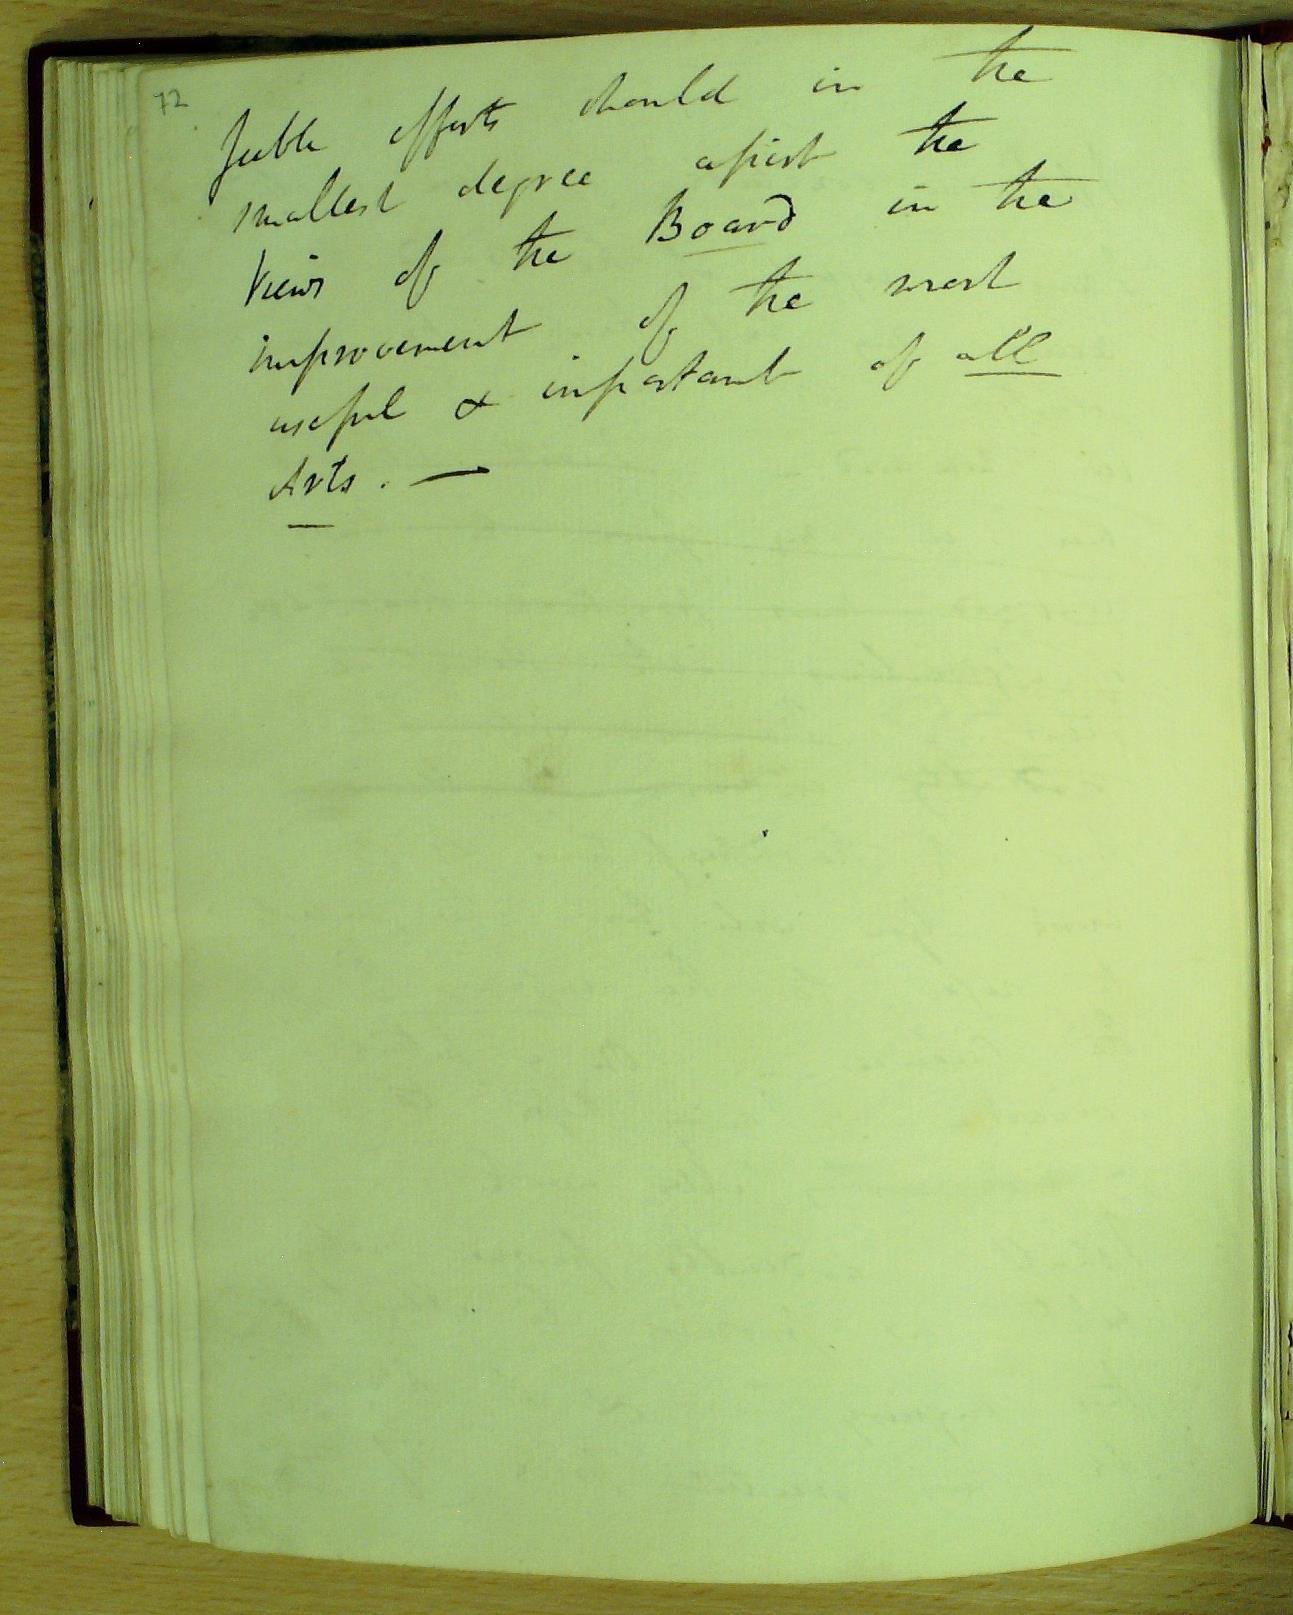 72
feeble efforts should in the
smallest degree assist the
Views of the Board in the
improvement of the most
useful & important of all
Arts. —